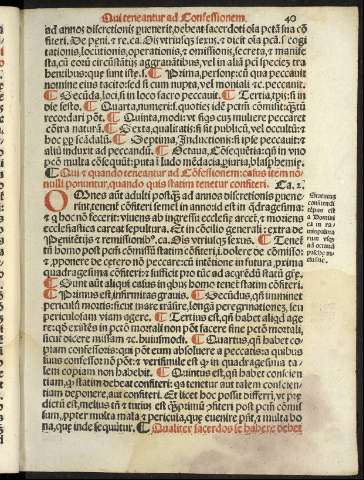 Qui teneantur ad Confessionem. 40
ad annos discretionis puenerit, debeat sacerdoti oīa pctā sua cō
fiteri. De peni. ⁊ re. ca. Oīs vtriusqȝ sexus. ⁊ dicit oīa pctā. s. cogi
tationis, locutionis, operationis, ⁊ omissionis, secreta, ⁊ manife
sta, cū eorū circūstātijs aggrauātibus, vel in aliā pcti speciez tra
hentibus: que sunt iste. s. ¶ Prima, persone: cū qua peccauit
nomine eius tacito: sed si cum nupta, vel moniali ⁊c. peccauit.
¶ Secūda, loci. si in loco sacro peccauit. ¶ Tertia, tpis: si in
die festo. ¶ Quarta, numeri: s. quoties idē pctm̄ cōmisit: qȝtū
recordari pōt. ¶ Quinta, modi: vt si quis cuȝ muliere peccarit
cōtra naturā. ¶ Sexta, qualitatis: si sit publicū, vel occultū: ⁊
hoc pp scādalū. ¶ Septima, Inductionis: si ipse peccauit: ⁊
aliū induxit ad peccandū. ¶ Octaua, Cōsequētia: qn̄ in vno
pctō multa cōsequūt: puta i ludo mēdacia, piuria, blasphemie.
¶ Qui ⁊ quando teneantur ad Cōfessionē: casus item nō
nulli ponuntur, quando quis statim tenetur confiteri. Ca. 2.
OMnes aūt adulti postqȝ ad annos discretionis puene
rint, tenent cōfiteri semel in anno: id est in qdragesima:
⁊ qui hoc nō fecerit: viuens ab ingressu ecclesie arcet, ⁊ moriens
ecclesiastica careat sepultura. Et in cōcilio generali: extra de
Penitētijs ⁊ remissionib⁹. ca. Oīs vtriusqȝ sexus. ¶ Tenet
tn̄ homo post pctm̄ cōmissū statim cōfiteri. i. dolere de cōmisso:
⁊ pponere de cetero nō peccare: cū intētione in futura, proxima
quadragesima cōfiteri: ⁊ sufficit pro tūc ad acqrēdū statū grē.
¶ Sunt aūt aliqui casus in qbus homo tenet statim cōfiteri.
¶ Primus est, infirmitas grauis. ¶ Secūdus, qn̄ imminet
periculū mortis: sicut mare trāsire, longā peregrinationes, seu
periculosam viam agere. ¶ Tertius est, qn̄ habet aliqd age
re: qd existēs in pctō mortali non pōt facere sine pctō mortali:
sicut dicere missam ⁊c. huiusmodi. ¶ Quartus, qn̄ habet co
piam confessoris: qui pōt eum absoluere a peccatis: a quibus
suus confessor nō pōt: ⁊ verisimile est qp in quadragesima ta
lem copiam non habebit. ¶ Quintus est, qn̄ habet conscien
tiam, qp statim debeat confiteri: qa tenetur aut talem conscien
tiam deponere, aut confiteri. Et licet hoc possit differri, vt pre
dictū est, melius tn̄ ⁊ tutius est qp primū cōfiteri post pctm̄ cōmis
sum, ppter multa mala ⁊ pericula, que euenire pn̄t, ⁊ multa bo
na, que inde sequuntur. ¶ Qualiter sacerdos se habere debet